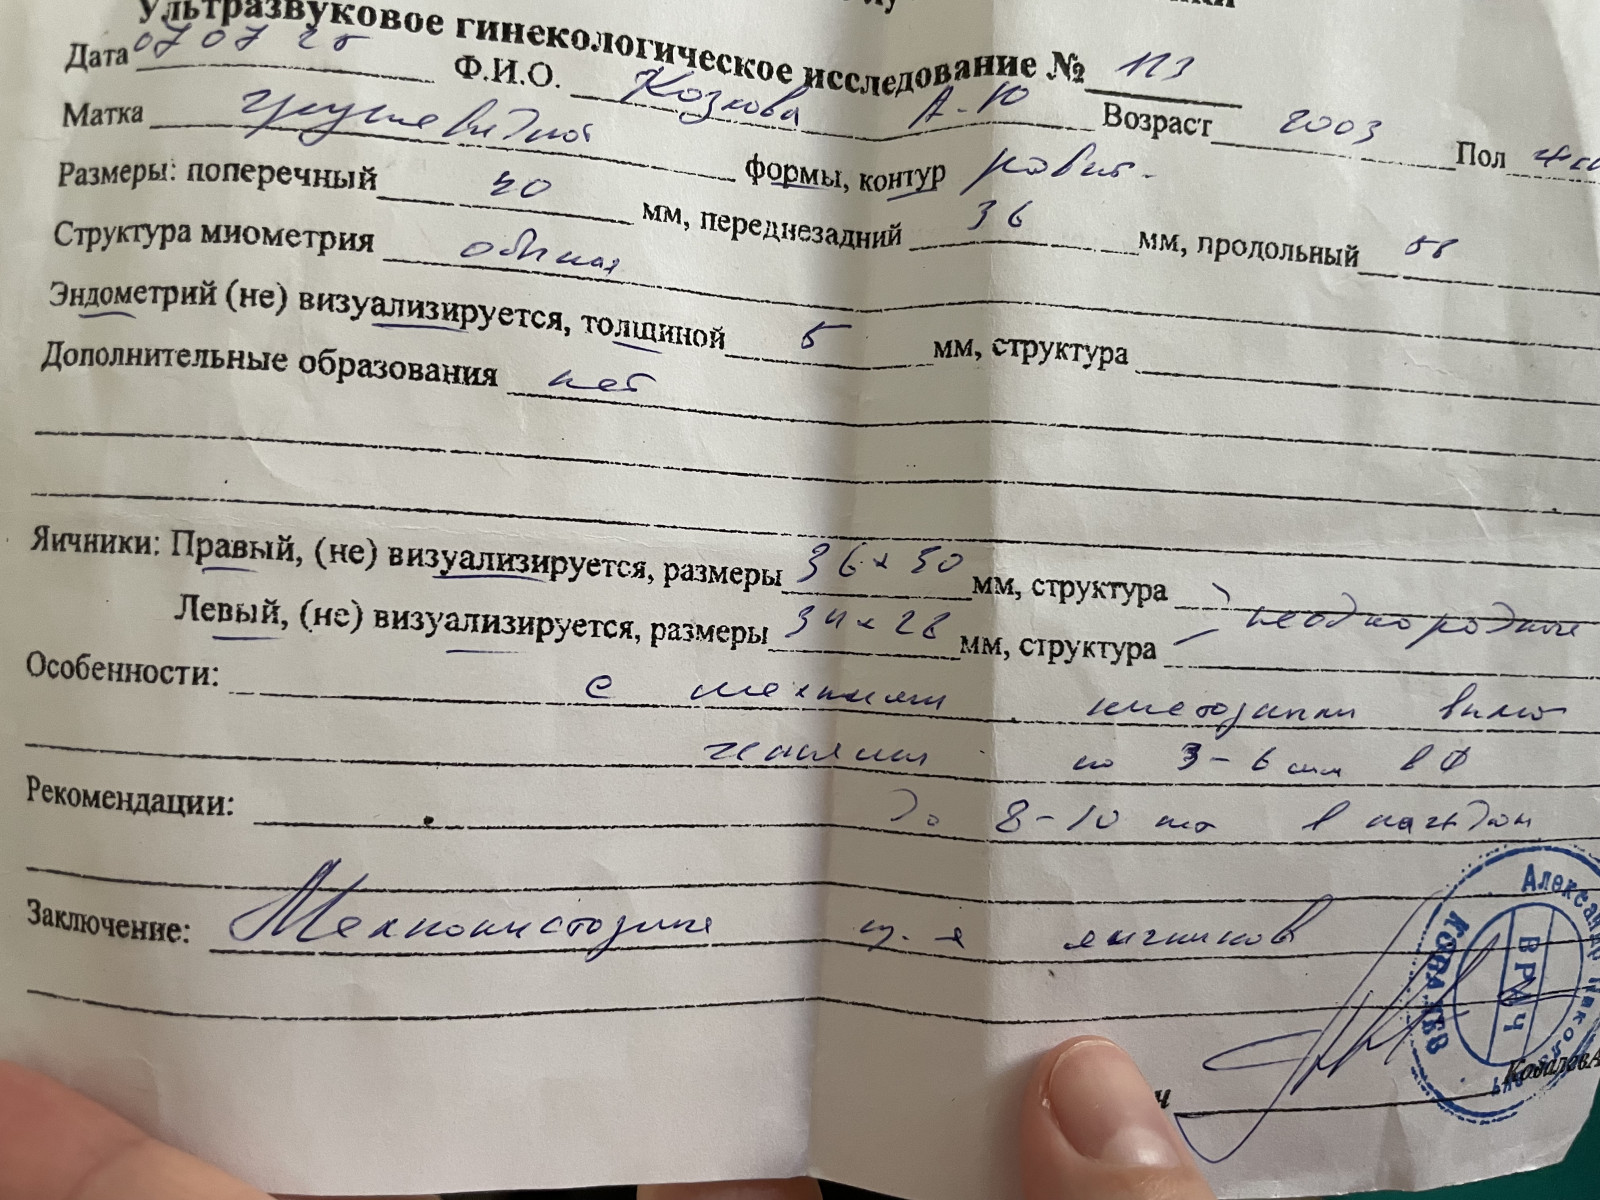 Ультразвуковое гинекологическое исследование № 113
Дата 07 07 25 Ф.И.О. Козлова А.Ю Возраст 2003 Пол жен
Матка грушевидной формы, контур ровн.
Размеры: поперечный 40 мм, переднезадний 36 мм, продольный
Структура миометрия обычная
Эндометрий (не) визуализируется, толщиной 5 мм, структура
Дополнительные образования нет
Яичники: Правый, (не) визуализируется, размеры 36 х 30 мм, структура неоднородные
Левый, (не) визуализируется, размеры 34 х 28 мм, структура
Особенности: с мелкими кистозными вклю
чениями по 3-6 мм в Ф
Рекомендации: до 8-10 шт в каждом
Заключение: Мелкокистозные из-я яичников
Александр Николаевич
КОВАЛЕВ
ВРАЧ
Ковалев А